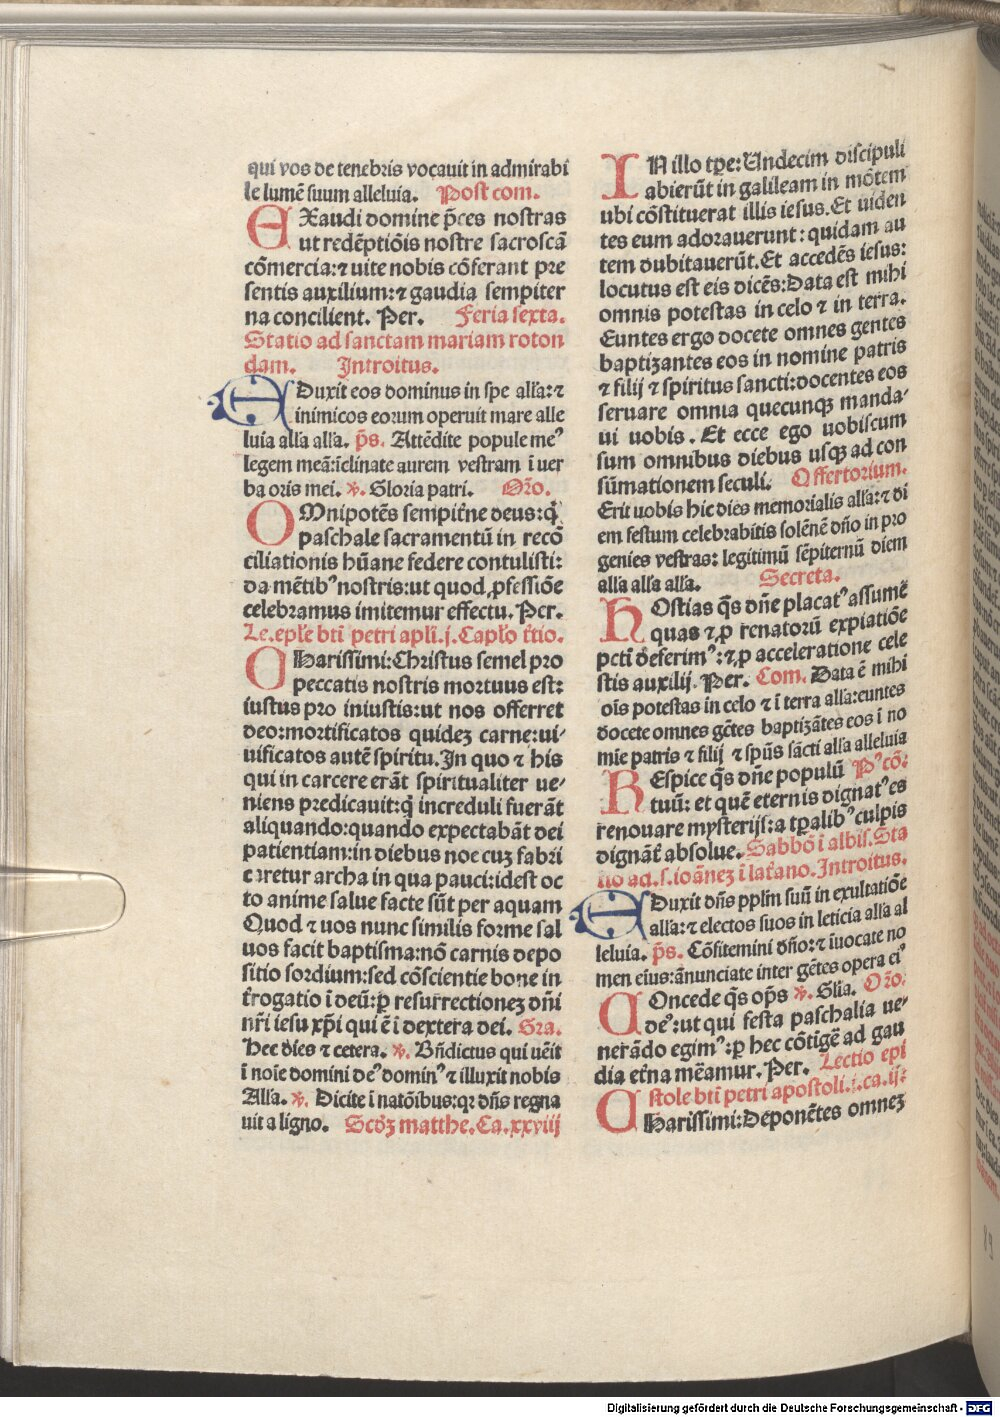 qui vos de tenebris vocauit in admirabi
le lumē suum alleluia. Post com.
EXaudi domine p̄ces nostras
ut redēptiōis nostre sacroscā
cōmercia: ⁊ uite nobis cōferant pre
sentis auxilium: ⁊ gaudia sempiter
na concilient. Per. Feria sexta.
Statio ad sanctam mariam roton
dam. Introitus.
EDuxit eos dominus in spe alľa: ⁊
inimicos eorum operuit mare alle
luia alľa alľa. p̄s. Attēdite popule meꝰ
legem meā: īclinate aurem vestram ī uer
ba oris mei. ℣. Gloria patri. Or̄o.
OMnipotēs sempiťne deus: q̇
paschale sacramentū in recō
ciliationis hūane federe contulisti:
da mētibꝰ nostris: ut quod ꝓfessiōe
celebramus imitemur effectu. Per.
Le. epľe bti petri apľi. j. Capľo t̄tio.
CHarissimi: Christus semel pro
peccatis nostris mortuus est:
iustus pro iniustis: ut nos offerret
deo: mortificatos quideʒ carne: ui-
uificatos autē spiritu. In quo ⁊ his
qui in carcere erāt spiritualiter ue-
niens predicauit: q̇ increduli fuerāt
aliquando: quando expectabāt dei
patientiam: in diebus noe cuʒ fabri
carretur archa in qua pauci: idest oc
to anime salue facte sūt per aquam
Quod ⁊ uos nunc similis forme sal
uos facit baptisma: nō carnis depo
sitio sordium: sed cōscientie bone in
ťrogatio ī deū: ꝑ resurrectioneʒ dn̄i
nr̄i iesu xp̄i qui ē ī dextera dei. Gra.
Hec dies ⁊ cetera. ℣. Bn̄dictus qui uēit
ī noīe domini deꝰ dominꝰ ⁊ illuxit nobis
Alľa. ℣. Dicite ī natōibus: qꝛ dn̄s regna
uit a ligno. Scd̄ʒ matthe. Ca. xxviij
IN illo tꝑe: Undecim discipuli
abierūt in galileam in mōtem
ubi cōstituerat illis iesus. Et uiden
tes eum adorauerunt: quidam au
tem dubitauerūt. Et accedēs iesus:
locutus est eis dicēs: Data est mihi
omnis potestas in celo ⁊ in terra.
Euntes ergo docete omnes gentes
baptizantes eos in nomine patris
⁊ filij ⁊ spiritus sancti: docentes eos
seruare omnia quecunqʒ manda-
ui uobis. Et ecce ego uobiscum
sum omnibus diebus usqʒ ad con
sūmationem seculi. Offertorium.
Erit uobis hic dies memorialis alľa: ⁊ di
em festum celebrabitis solēnē dn̄o in pro
genies vestras: legitimū sēpiternū diem
alľa alľa alľa. Secreta.
HOstias q̄s dn̄e placatꝰ assumē
quas ⁊ ꝓ renatorū expiatiōe
pcti deferimꝰ: ⁊ ꝓ acceleratione cele
stis auxilij. Per. Com. Data ē mihi
oīs potestas in celo ⁊ ī terra alľa: euntes
docete omnes gētes baptizātes eos ī no
mīe patris ⁊ filij ⁊ spūs sācti alľa alleluia
REspice q̄s dn̄e populū Pꝰ cō:
tuū: et quē eternis dignatꝰ es
renouare mysterijs: a tꝑalibꝰ culpis
dignāť absolue. Sabbō ī albis. Sta
tio ad. s. ioāneʒ ī laťano. Introitus.
EDuxit dn̄s ppľm suū in exultatiōe
alľa: ⁊ electos suos in leticia alľa al
leluia. p̄s. Cōfitemini dn̄o: ⁊ īuocate no
men eius: ānunciate inter gētes opera eiꝰ
COncede q̄s op̄s ℣. Glīa. Or̄o.
deꝰ: ut qui festa paschalia ue-
nerādo egimꝰ: ꝑ hec cōtigē ad gau
dia eťna mēamur. Per. Lectio epi
stole bti petri apostoli. i. ca. ij:
CHarissimi: Deponētes omneʒ
89
Digitalisierung gefördert durch die Deutsche Forschungsgemeinschaft - DFG